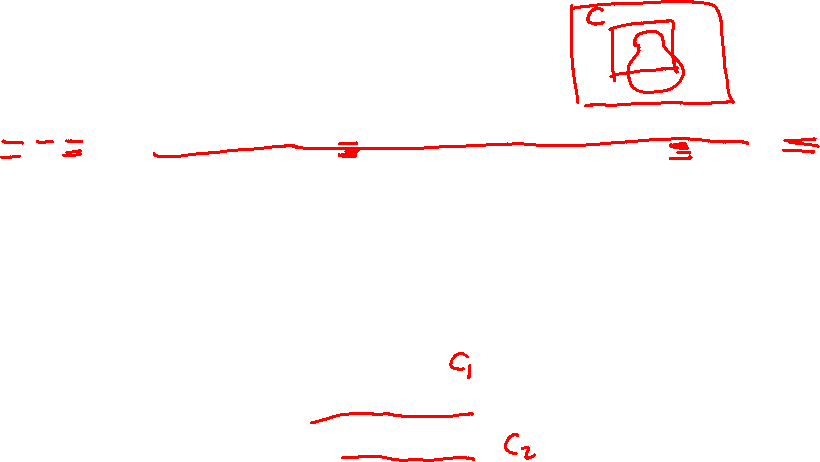 C
C₁
C₂